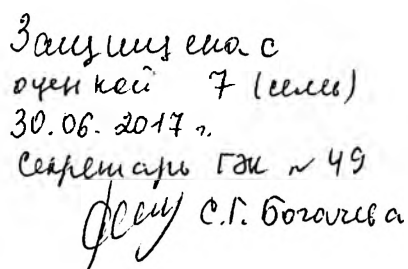 Защищена с
оценкой 7 (семь)
30.06.2017 г.
Секретарь ГЭК № 49
С.Г. Богачева